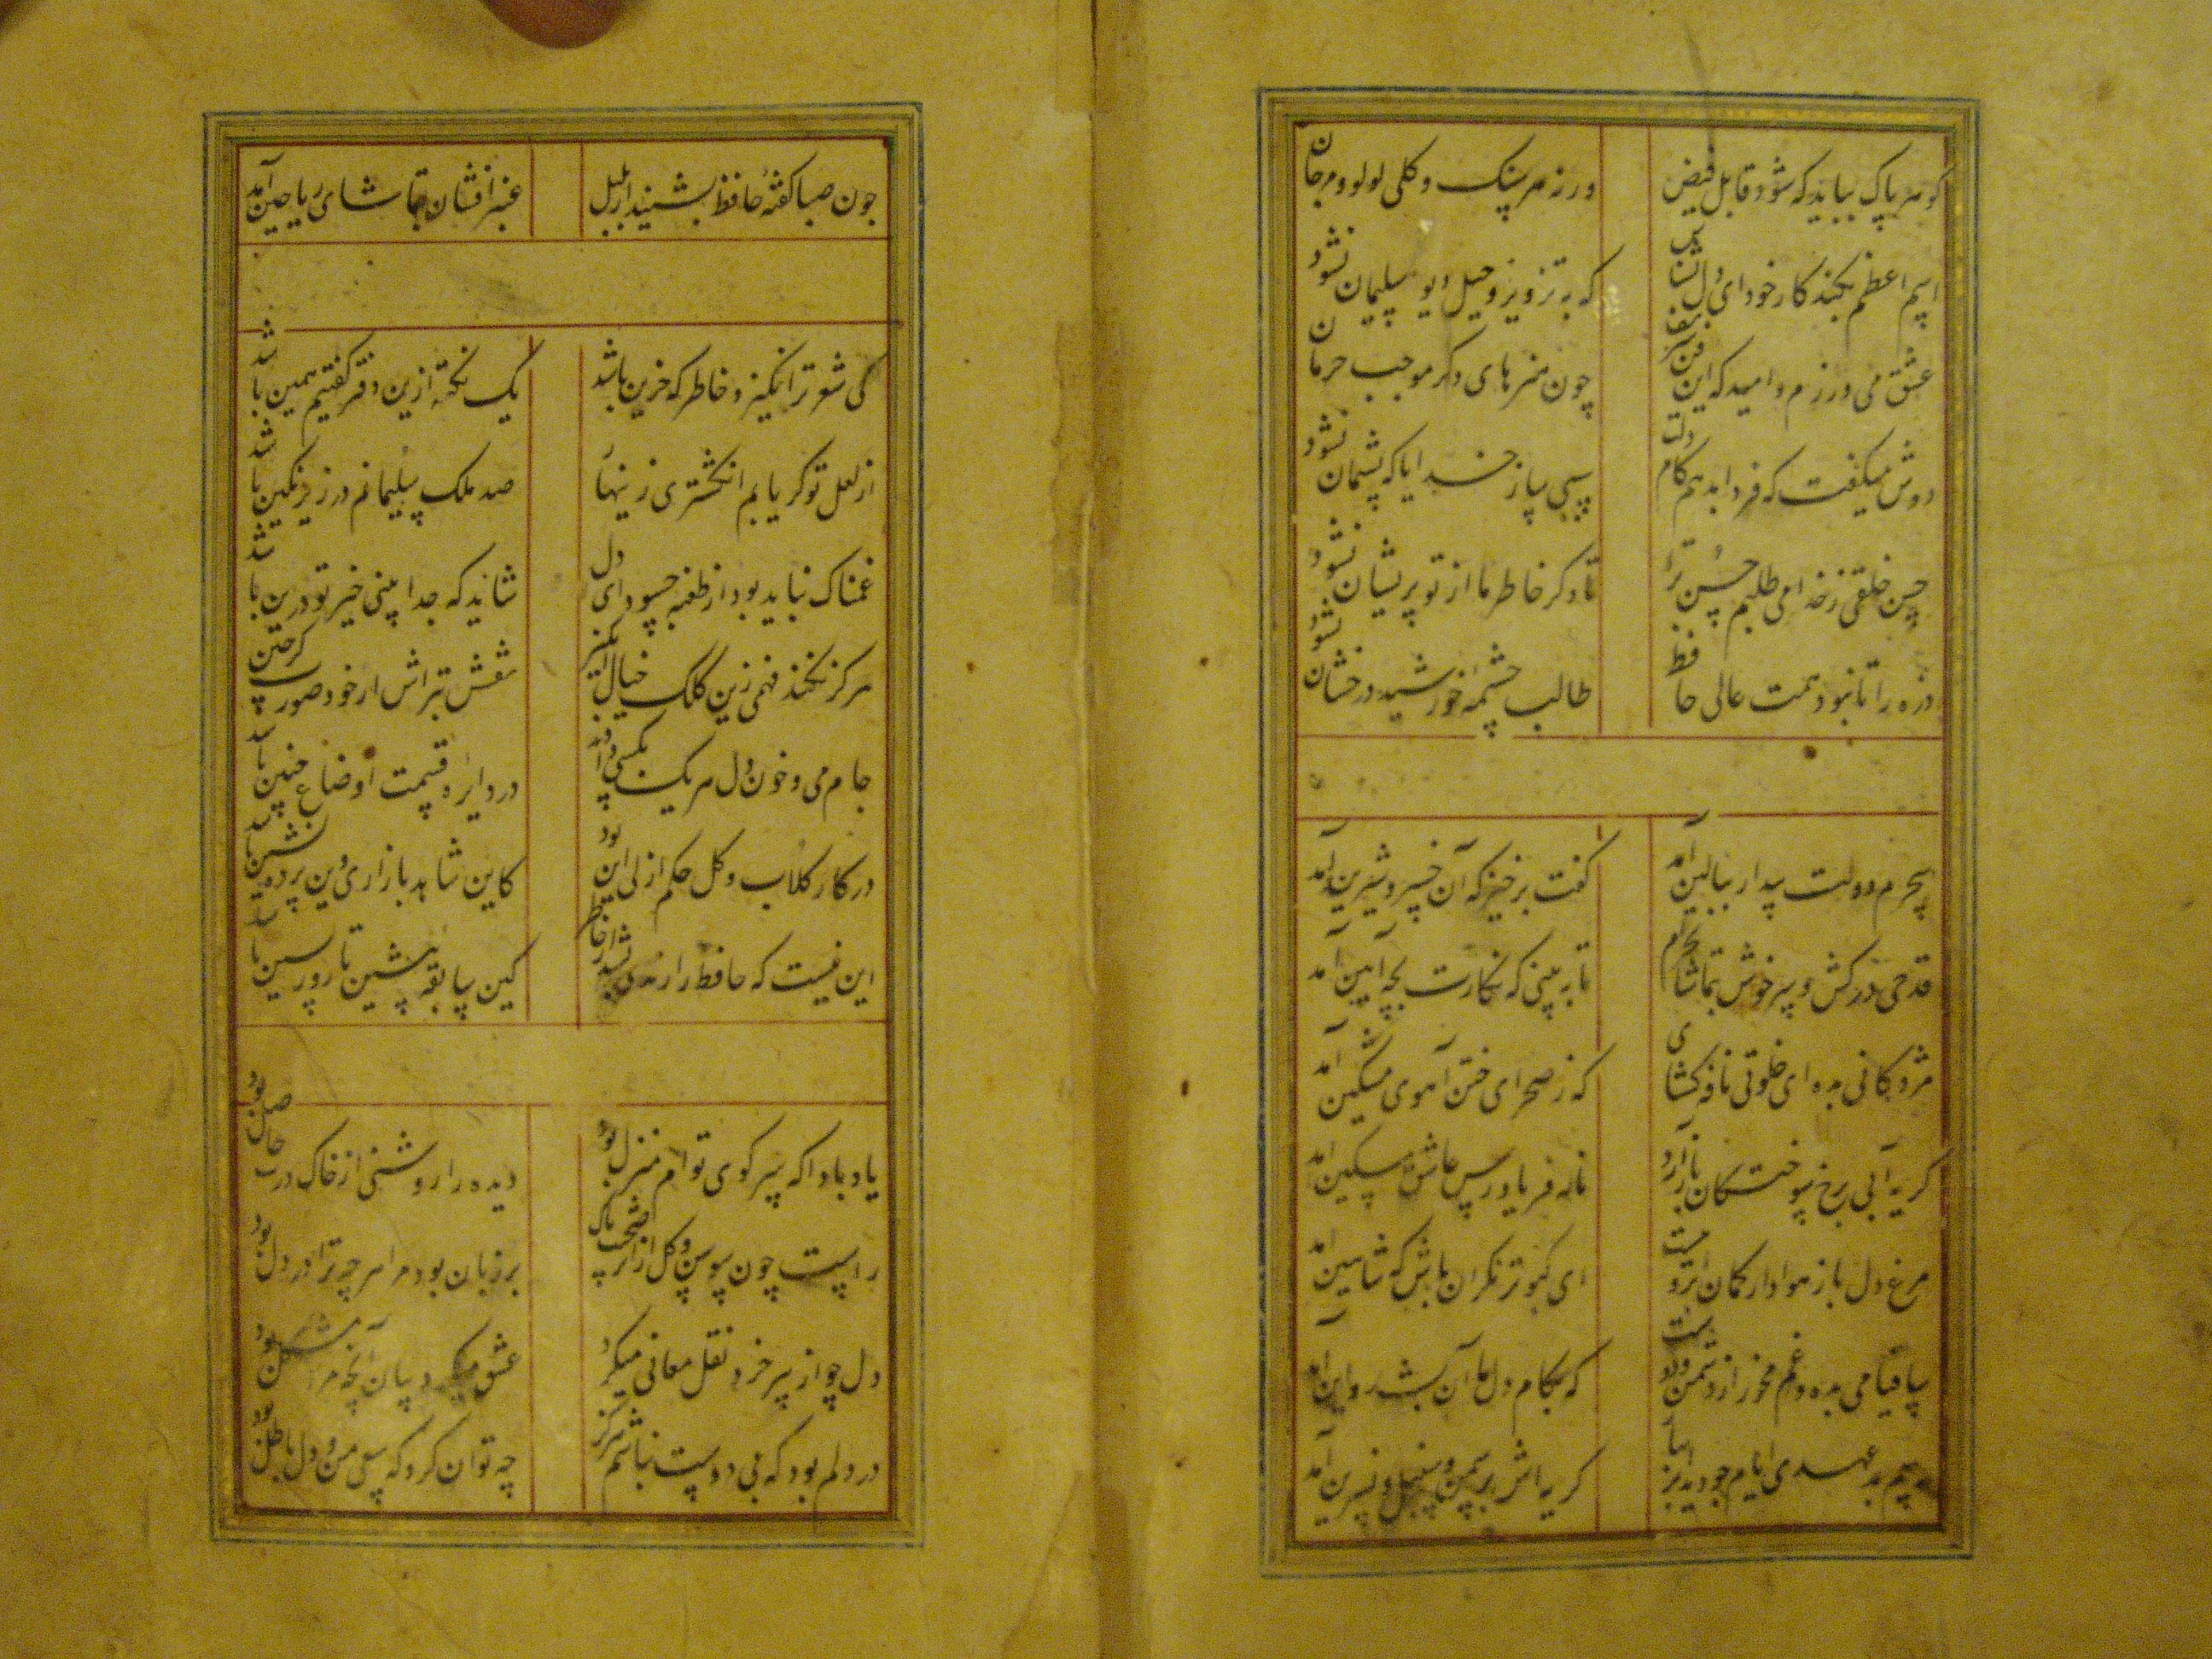 کوهر پاک بباید که شود قابل فیض
ورنه هر سنک و کلی لولو و مرجان
اسم اعظم بکند کار خود ای دل خوش باش
که به تزویر و حیل دیو سلیمان نشود
عشق می ورزم و امید که این فن شریف
چون هنرهای دکر موجب حرمان
دوش میکفت که فردا بدهم کام دلت
سببی ساز خدایا که پشیمان نشود
حسن خلقی ز خدا می طلبم حسن ترا
تا دکر خاطر ما از تو پریشان نشود
ذره را تا نبود همت عالی حافظ
طالب چشمه خورشید درخشان نشود
سحرم دولت بیدار ببالین آمد
کفت برخیز که آن خسرو شیرین آمد
قدحی درکش و سرخوش بتماشا بخرام
تا به بینی که نکارت بچه آیین آمد
مژدکانی بده ای خلوتی نافه کشای
که ز صحرای ختن آهوی مشکین آمد
کریه آبی برخ سوختکان باز آورد
ناله فریادرس عاشق مسکین آمد
مرغ دل باز هوادار کمان ابرویست
ای کبوتر نکران باش که شاهین آمد
ساقیا می بده و غم مخور از دشمن و دوست
که بکام دل ما آن بشد و این آمد
رسم بدعهدی ایام چو دید ابر بهار
کریه اش بر سمن و سنبل و نسرین آمد
چون صبا کفته حافظ بشنید از بلبل
عنبرافشان بتماشای ریاحین آمد
کی شعر تر انکیزد خاطر که حزین باشد
یک نکته ازین دفتر کفتیم همین باشد
از لعل تو کر یابم انکشتری زنهار
صد ملک سلیمانم در زیر نکین باشد
غمناک نباید بود از طعنه حسود ای دل
شاید که جدا بینی خیر تو درین باشد
هر کو نکند فهمی زین کلک خیال انکیز
نقشش بتراش ار خود صورت کر چین
جام می و خون دل هر یک بکسی دادند
در دایره قسمت اوضاع چنین باشد
در کار کلاب و کل حکم ازلی این بود
کاین شاهد بازاری وین پرده نشین باشد
این نیست که حافظ را رندی بشد از خاطر
کین سابقه پیشین تا روز پسین باشد
یاد باد آنکه سر کوی توام منزل بود
دیده را روشنی از خاک درت حاصل بود
راست چون سوسن و کل از اثر صحبت پاک
بر زبان بود مرا هر چه ترا در دل بود
دل چو از پیر خرد نقل معانی میکرد
عشق میکرد بیان آنچه مرا مشکل بود
در دلم بود که بی دوست نباشم هرکز
چه توان کرد که سعی من و دل باطل بود